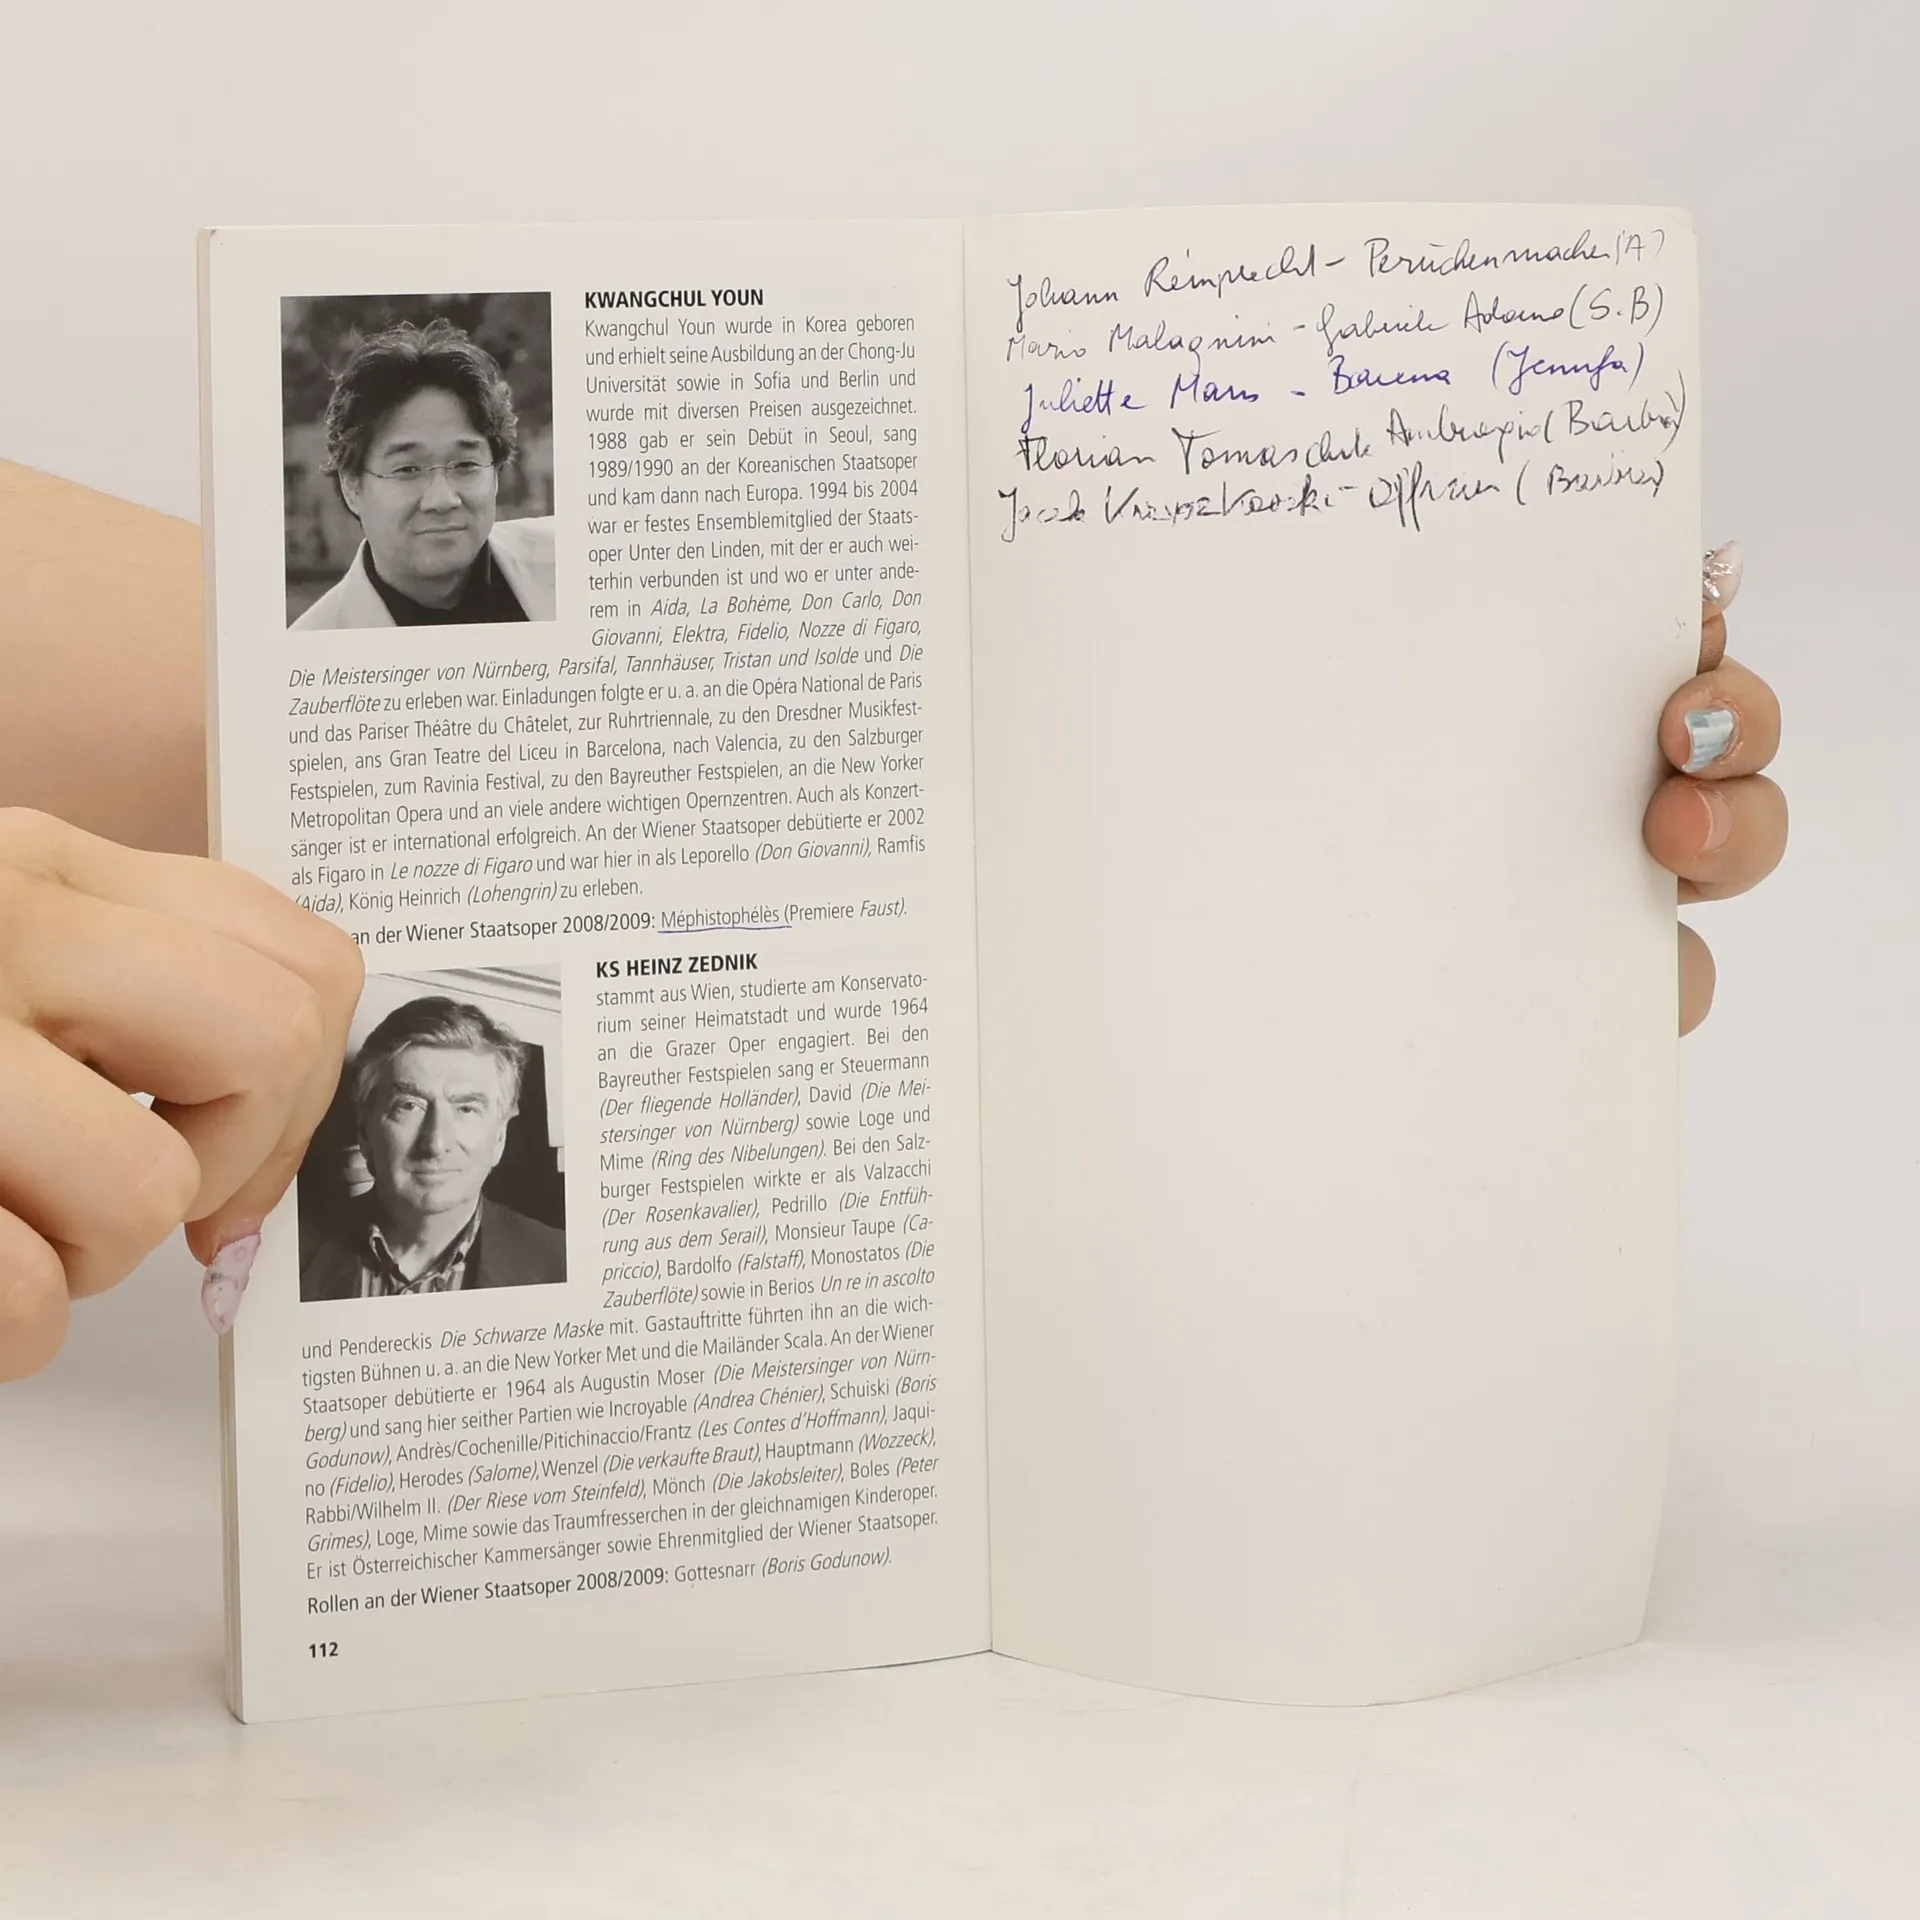 KWANGCHUL YOUN
Kwangchul Youn wurde in Korea geboren
und erhielt seine Ausbildung an der Chong-Ju
Universität sowie in Sofia und Berlin und
wurde mit diversen Preisen ausgezeichnet.
1988 gab er sein Debüt in Seoul, sang
1989/1990 an der Koreanischen Staatsoper
und kam dann nach Europa. 1994 bis 2004
war er festes Ensemblemitglied der Staats-
oper Unter den Linden, mit der er auch wei-
terhin verbunden ist und wo er unter ande-
rem in Aida, La Bohème, Don Carlo, Don
Giovanni, Elektra, Fidelio, Nozze di Figaro,
Die Meistersinger von Nürnberg, Parsifal, Tannhäuser, Tristan und Isolde und Die
Zauberflöte zu erleben war. Einladungen folgte er u. a. an die Opéra National de Paris
und das Pariser Théâtre du Châtelet, zur Ruhrtriennale, zu den Dresdner Musikfest-
spielen, ans Gran Teatre del Liceu in Barcelona, nach Valencia, zu den Salzburger
Festspielen, zum Ravinia Festival, zu den Bayreuther Festspielen, an die New Yorker
Metropolitan Opera und an viele andere wichtigen Opernzentren. Auch als Konzert-
sänger ist er international erfolgreich. An der Wiener Staatsoper debütierte er 2002
als Figaro in Le nozze di Figaro und war hier in als Leporello (Don Giovanni), Ramfis
(Aida), König Heinrich (Lohengrin) zu erleben.
an der Wiener Staatsoper 2008/2009: Méphistophélès (Premiere Faust).
KS HEINZ ZEDNIK
stammt aus Wien, studierte am Konservato-
rium seiner Heimatstadt und wurde 1964
an die Grazer Oper engagiert. Bei den
Bayreuther Festspielen sang er Steuermann
(Der fliegende Holländer), David (Die Mei-
stersinger von Nürnberg) sowie Loge und
Mime (Ring des Nibelungen). Bei den Salz-
burger Festspielen wirkte er als Valzacchi
(Der Rosenkavalier), Pedrillo (Die Entfüh-
rung aus dem Serail), Monsieur Taupe (Ca-
priccio), Bardolfo (Falstaff), Monostatos (Die
Zauberflöte) sowie in Berios Un re in ascolto
und Pendereckis Die Schwarze Maske mit. Gastauftritte führten ihn an die wich-
tigsten Bühnen u. a. an die New Yorker Met und die Mailänder Scala. An der Wiener
Staatsoper debütierte er 1964 als Augustin Moser (Die Meistersinger von Nürn-
berg) und sang hier seither Partien wie Incroyable (Andrea Chénier), Schuiski (Boris
Godunow), Andrès/Cochenille/Pitichinaccio/Frantz (Les Contes d'Hoffmann), Jaqui-
no (Fidelio), Herodes (Salome), Wenzel (Die verkaufte Braut), Hauptmann (Wozzeck),
Rabbi/Wilhelm II. (Der Riese vom Steinfeld), Mönch (Die Jakobsleiter), Boles (Peter
Grimes), Loge, Mime sowie das Traumfresserchen in der gleichnamigen Kinderoper.
Er ist Österreichischer Kammersänger sowie Ehrenmitglied der Wiener Staatsoper.
Rollen an der Wiener Staatsoper 2008/2009: Gottesnarr (Boris Godunow).
112
Johann Reinprecht - Perückenmacher (A)
Mario Malagnini - Gabriele Adorno (S.B)
Juliette Mars - Barena (Jenufa)
Florian Tomaschek Ambrogio